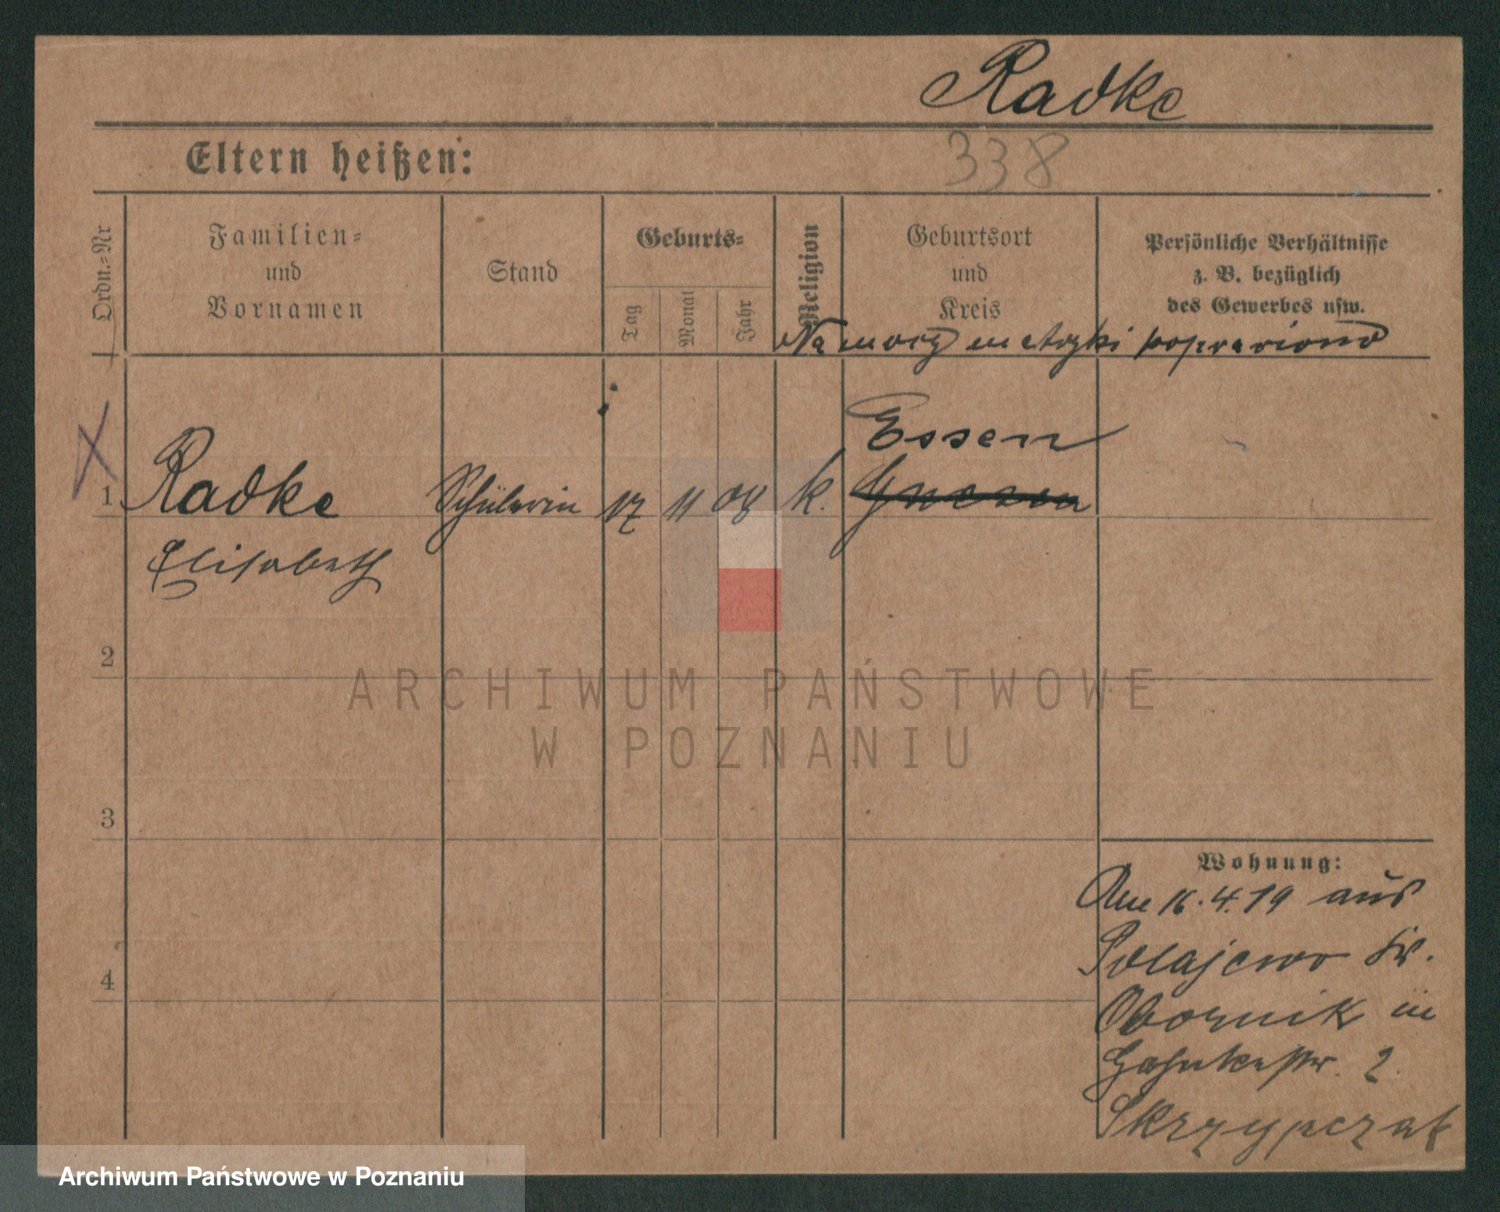 Radke
Eltern heißen:
338
Ordn.-Nr
Familien-
und
Vornamen
Stand
Geburts-
Tag
Monat
Jahr
Religion
Geburtsort
und
Kreis
Persönliche Verhältnisse
z. B. bezüglich
des Gewerbes usw.
Na mocy metryki poprawiono
Essen
1. Radke Schülerin 17 11 08 k. Gnesen
Elisabeth
2
3
4
Wohnung:
Am 16.4.19 aus
Polajewo Kr.
Obornik in
2.
Skrzypczak
ARCHIWUM PAŃSTWOWE
W POZNANIU
Archiwum Państwowe w Poznaniu